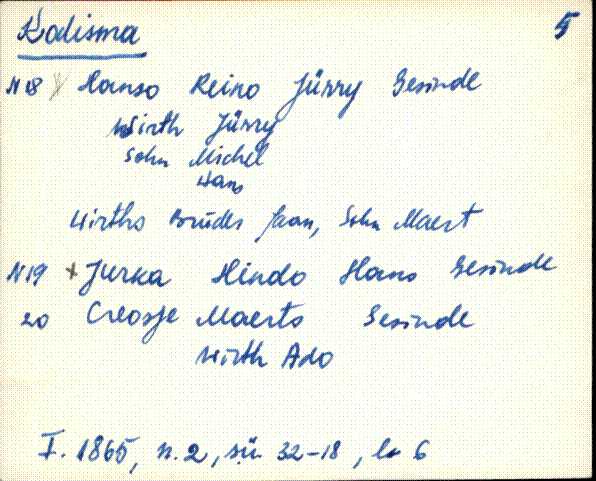 Kodisma 5
N 18 Hanso Reino Jürry Gesinde
Wirth Jürry
Sohn Michel
Hans
Wirths Bruder Jaan, Sohn Maert
N 19 + Jurka Hindo Hans Gesinde
20 Maerts Gesinde
Wirth Ado
I. 1865, n. 2, sü. 32-18, lk 6